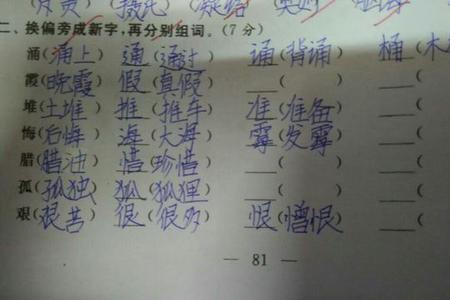 二、换偏旁成新字,再分别组词。(7分)
涌(涌上) 通(通过) 诵(背诵) 桶(木
霞(晓霞) 假(真假) __(   ) __(
堆(土堆) 推(推车) 准(准备) __(
悔(后悔) 海(大海) 霉(发霉) __(
腊(腊油) 惜(珍惜) __(   ) __(
孤(孤独) 狐(狐狸) __(   ) __(
艰(艰苦) 很(很多) 恨(憎恨) __(
— 81 —